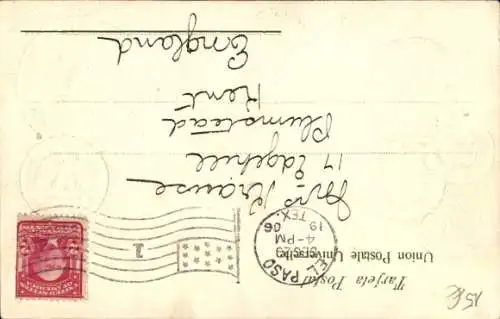 Tarjeta Postal
Union Postale Universelle
EL PASO
DEC 29
4-PM
19 06
TEX.
1
Mrs Krause
17 Edgehill
Plumstead
Kent
England